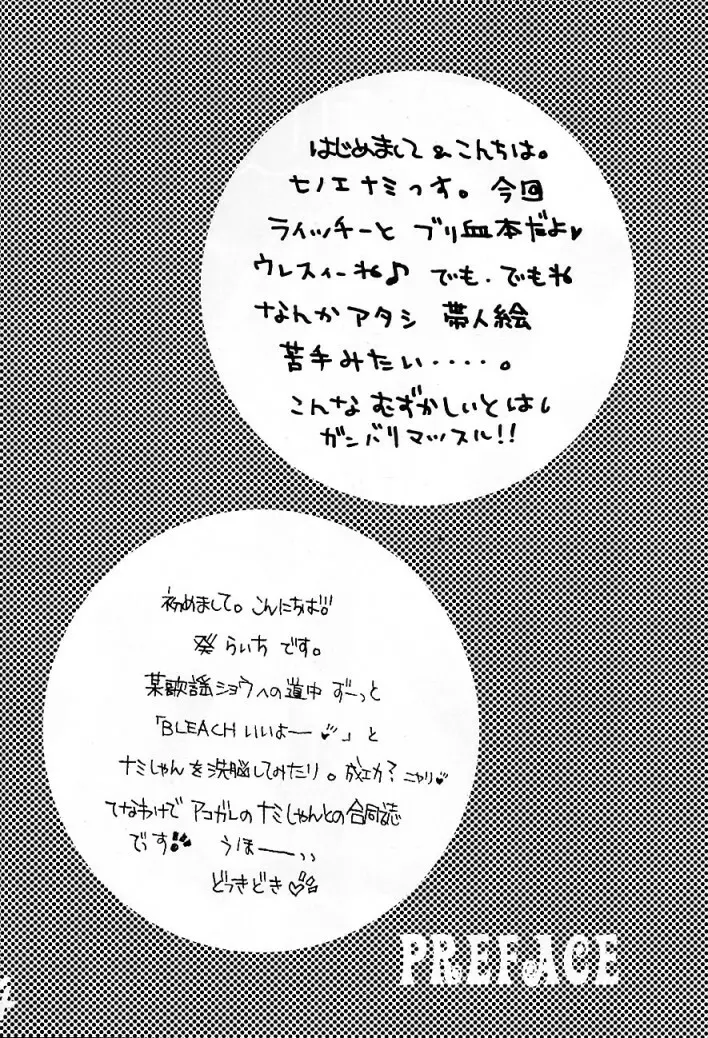 はじめまして&こんちは。
七ノエナミっす。今回
ライッチーと ブリ血本だよ♥
ウレスィーね♪ でも・でもね
なんかアタシ 帯人絵
苦手みたい・・・・。
こんなむずかしいとは!
ガンバリマッスル!!
初めまして。こんにちは!!
葵 らいち です。
某歌謡ショウへの道中 ずーっと
「BLEACH いいよー♥」と
ナミしゃんを洗脳してみたり。成功? ニヤリ♥
てなわけで アコガレの ナミしゃんとの合同誌
でっす!! うほーーっっ
どっきどき♡
PREFACE
4